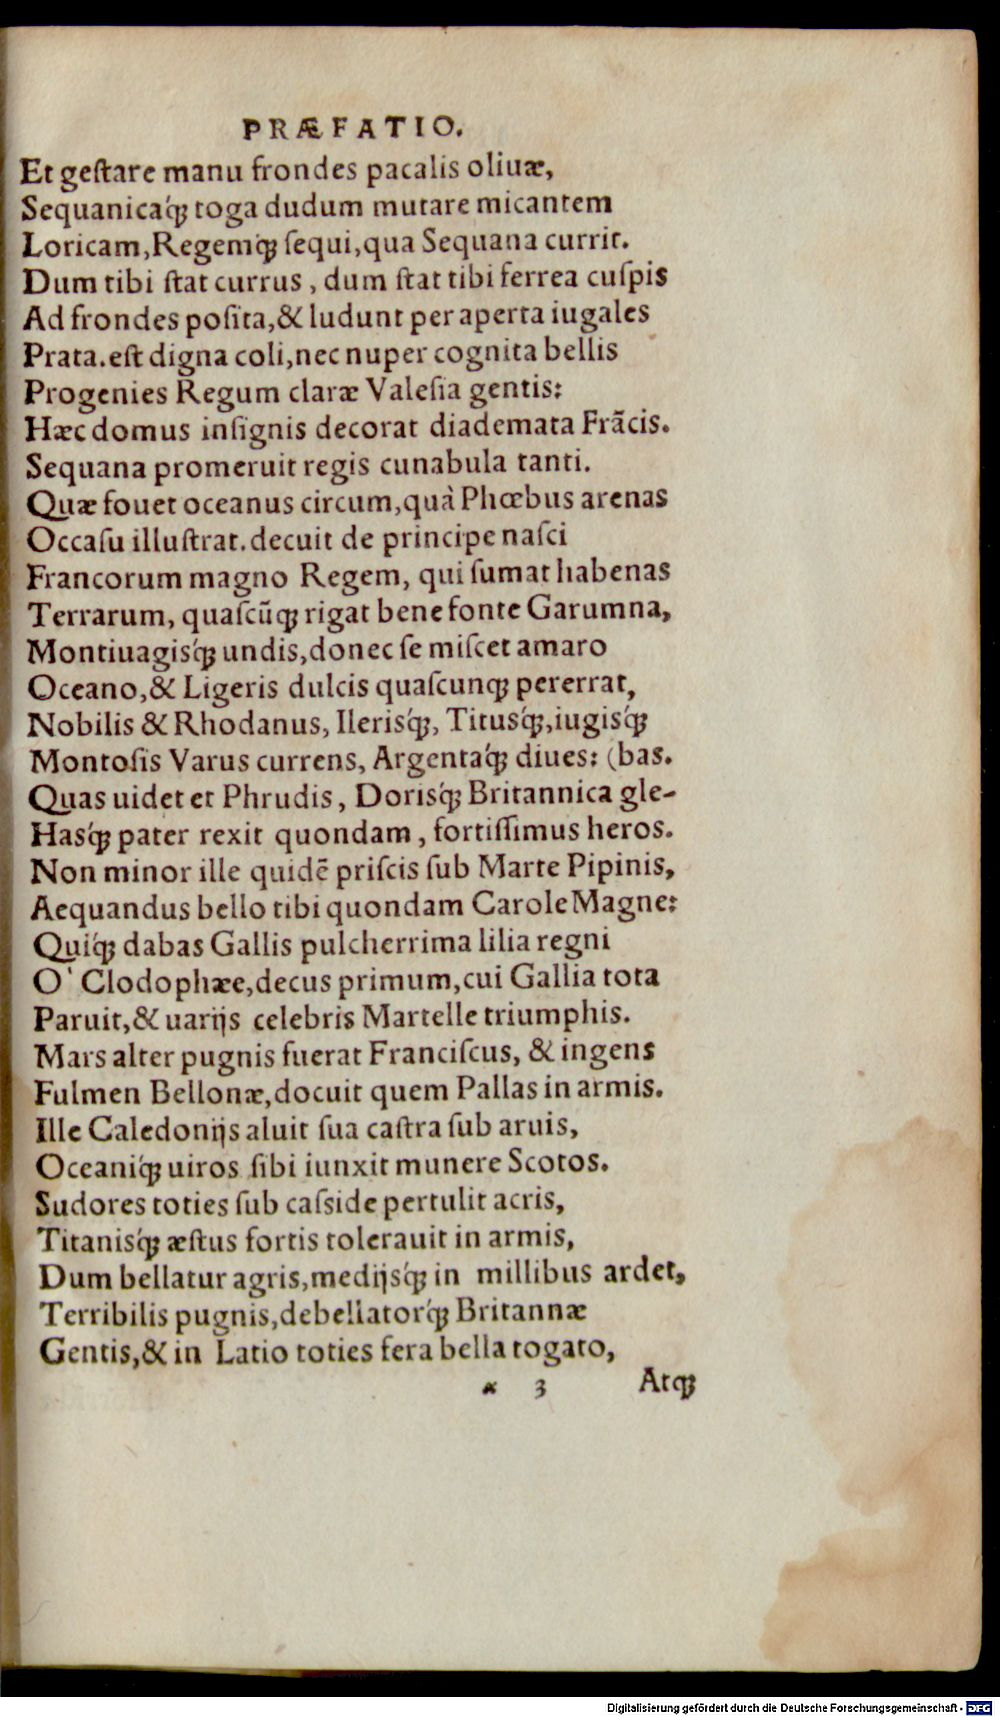 PRÆFATIO.
Et geſtare manu frondes pacalis oliuæ,
Sequanicaq́; toga dudum mutare micantem
Loricam,Regemq́; ſequi,qua Sequana currit.
Dum tibi ſtat currus , dum ſtat tibi ferrea cuſpis
Ad frondes poſita,& ludunt per aperta iugales
Prata.eſt digna coli,nec nuper cognita bellis
Progenies Regum claræ Valeſia gentis:
Hæc domus inſignis decorat diademata Frãcis.
Sequana promeruit regis cunabula tanti.
Quæ fouet oceanus circum,quà Phœbus arenas
Occaſu illuſtrat.decuit de principe naſci
Francorum magno Regem, qui ſumat habenas
Terrarum, quaſcũq; rigat bene fonte Garumna,
Montiuagisq́; undis,donec ſe miſcet amaro
Oceano,& Ligeris dulcis quaſcunq; pererrat,
Nobilis & Rhodanus, Ilerisq́;, Titusq́;,iugisq́;
Montoſis Varus currens, Argentaq́; diues: (bas.
Quas uidet et Phrudis, Dorisq́; Britannica gle-
Hasq́; pater rexit quondam, fortiſſimus heros.
Non minor ille quidẽ priſcis ſub Marte Pipinis,
Aequandus bello tibi quondam Carole Magne:
Quiq́; dabas Gallis pulcherrima lilia regni
O' Clodophæe,decus primum,cui Gallia tota
Paruit,& uarijs celebris Martelle triumphis.
Mars alter pugnis fuerat Franciſcus, & ingens
Fulmen Bellonæ,docuit quem Pallas in armis.
Ille Caledonijs aluit ſua caſtra ſub aruis,
Oceaniq́; uiros ſibi iunxit munere Scotos.
Sudores toties ſub caſside pertulit acris,
Titanisq́; æſtus fortis tolerauit in armis,
Dum bellatur agris,medijsq́; in millibus ardet,
Terribilis pugnis,debellatorq́; Britannæ
Gentis,& in Latio toties fera bella togato,
* 3 Atq;
Digitalisierung gefördert durch die Deutsche Forschungsgemeinschaft - DFG